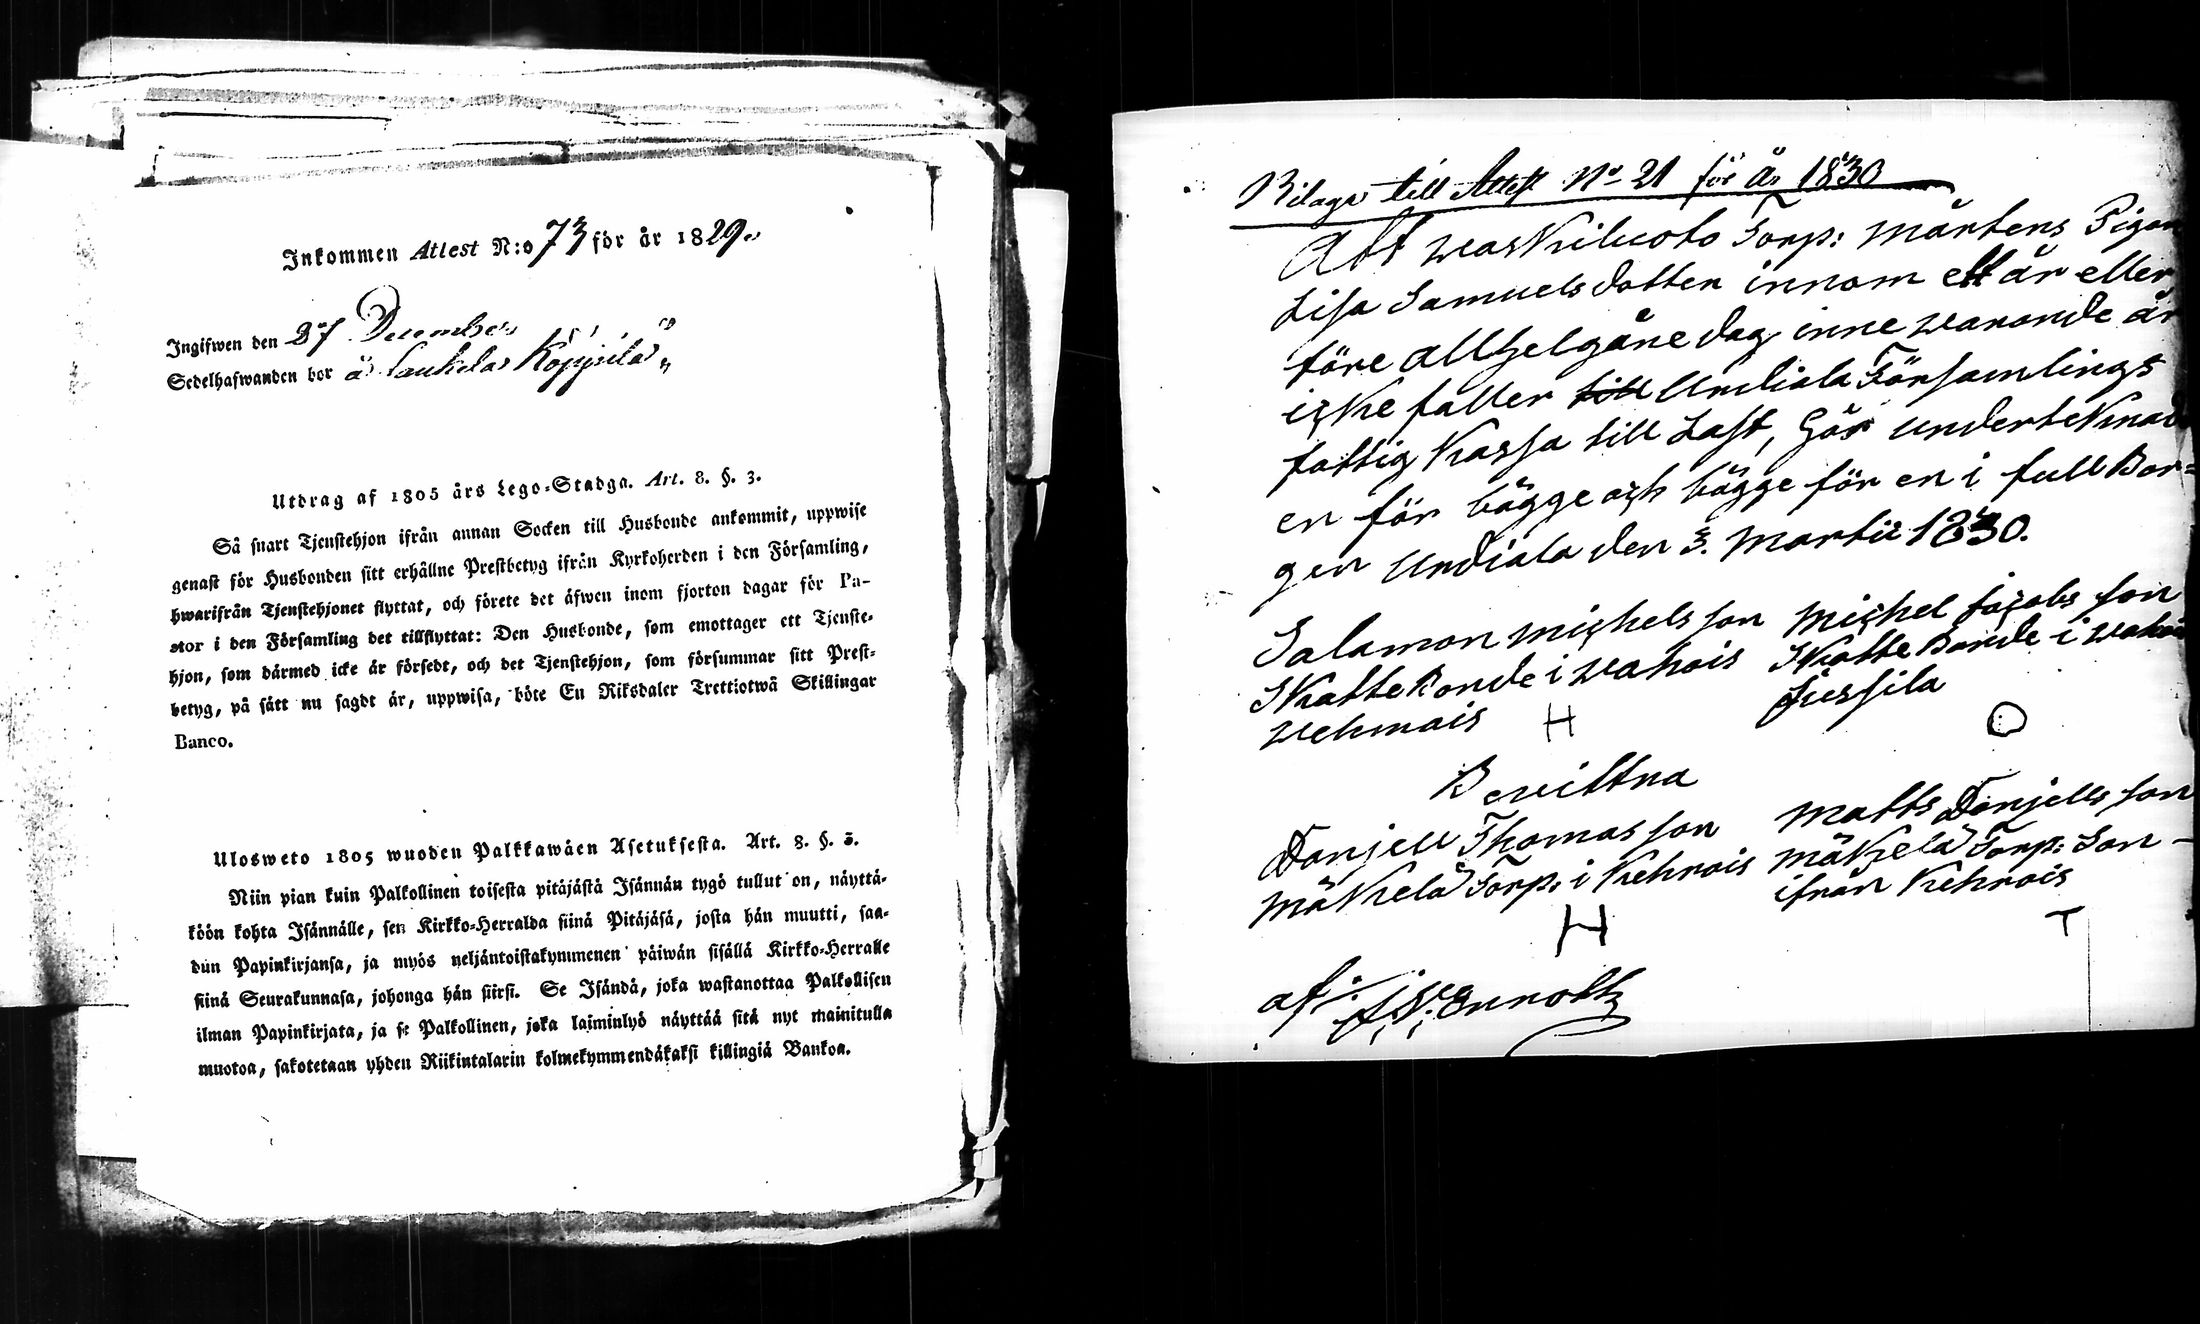 Inkommen Attest N:o 73 för år 1829.
Ingifwen den 27 December
Sedelhafwanden bor å Laukela Köppilä
Utdrag af 1805 års Lego-Stadga. Art. 8. §. 3.
Så snart Tjenstehjon ifrån annan Socken till Husbonde ankommit, uppwise
genast för Husbonden sitt erhållne Prestbetyg ifrån Kyrkoherden i den Församling,
hwarifrån Tjenstehjonet flyttat, och förete det äfwen inom fjorton dagar för Pa-
stor i den Församling det tillflyttat: Den Husbonde, som emottager ett Tjenste-
hjon, som därmed icke är försedt, och det Tjenstehjon, som försummar sitt Prest-
betyg, på sätt nu sagdt är, uppwisa, böte En Riksdaler Trettiotwå Skillingar
Banco.
Ulosweto 1805 wuoden Palkkawäen Asetuksesta. Art. 8. §. 3.
Niin pian kuin Palkollinen toisesta pitäjästä Isännän tygö tullut on, näyttä-
köön kohta Isännälle, sen Kirkko-Herralda siinä Pitäjäsä, josta hän muutti, saa-
dun Papinkirjansa, ja myös neljäntoistakymmenen päiwän sisällä Kirkko-Herralle
siinä Seurakunnasa, johonga hän siirsi. Se Isändä, joka wastanottaa Palkollisen
ilman Papinkirjata, ja se Palkollinen, joka laiminlyö näyttää sitä nyt mainitulla
muotoa, sakotetaan yhden Riikintalarin kolmekymmendäkaksi killingiä Bankoa.
Bilaga till Attest No 21 för År 1830
Att Waskiluoto Torp: Mårtens Pigan
Lisa Samuels dotter innom ett år eller
före allhelgåne dag inne warande år
icke faller till Urdiala Församlings
fattig Kassa till Last, Går underteknad
en för bägge och bägge för en i full Bor=
gen Urdiala den 3. Martii 1830.
Salamon Michels son Michel Jacobs son
Skatte Bonde i Wahois Skatte Bonde i Wahois
Wehmais H Jussila O
Bewittna
Danjell Thomas son Matts Danjells son
Mäkelä Torp: i Kehrois Mäkelä Torp: Son -
H ifrån Kehrois T
af: